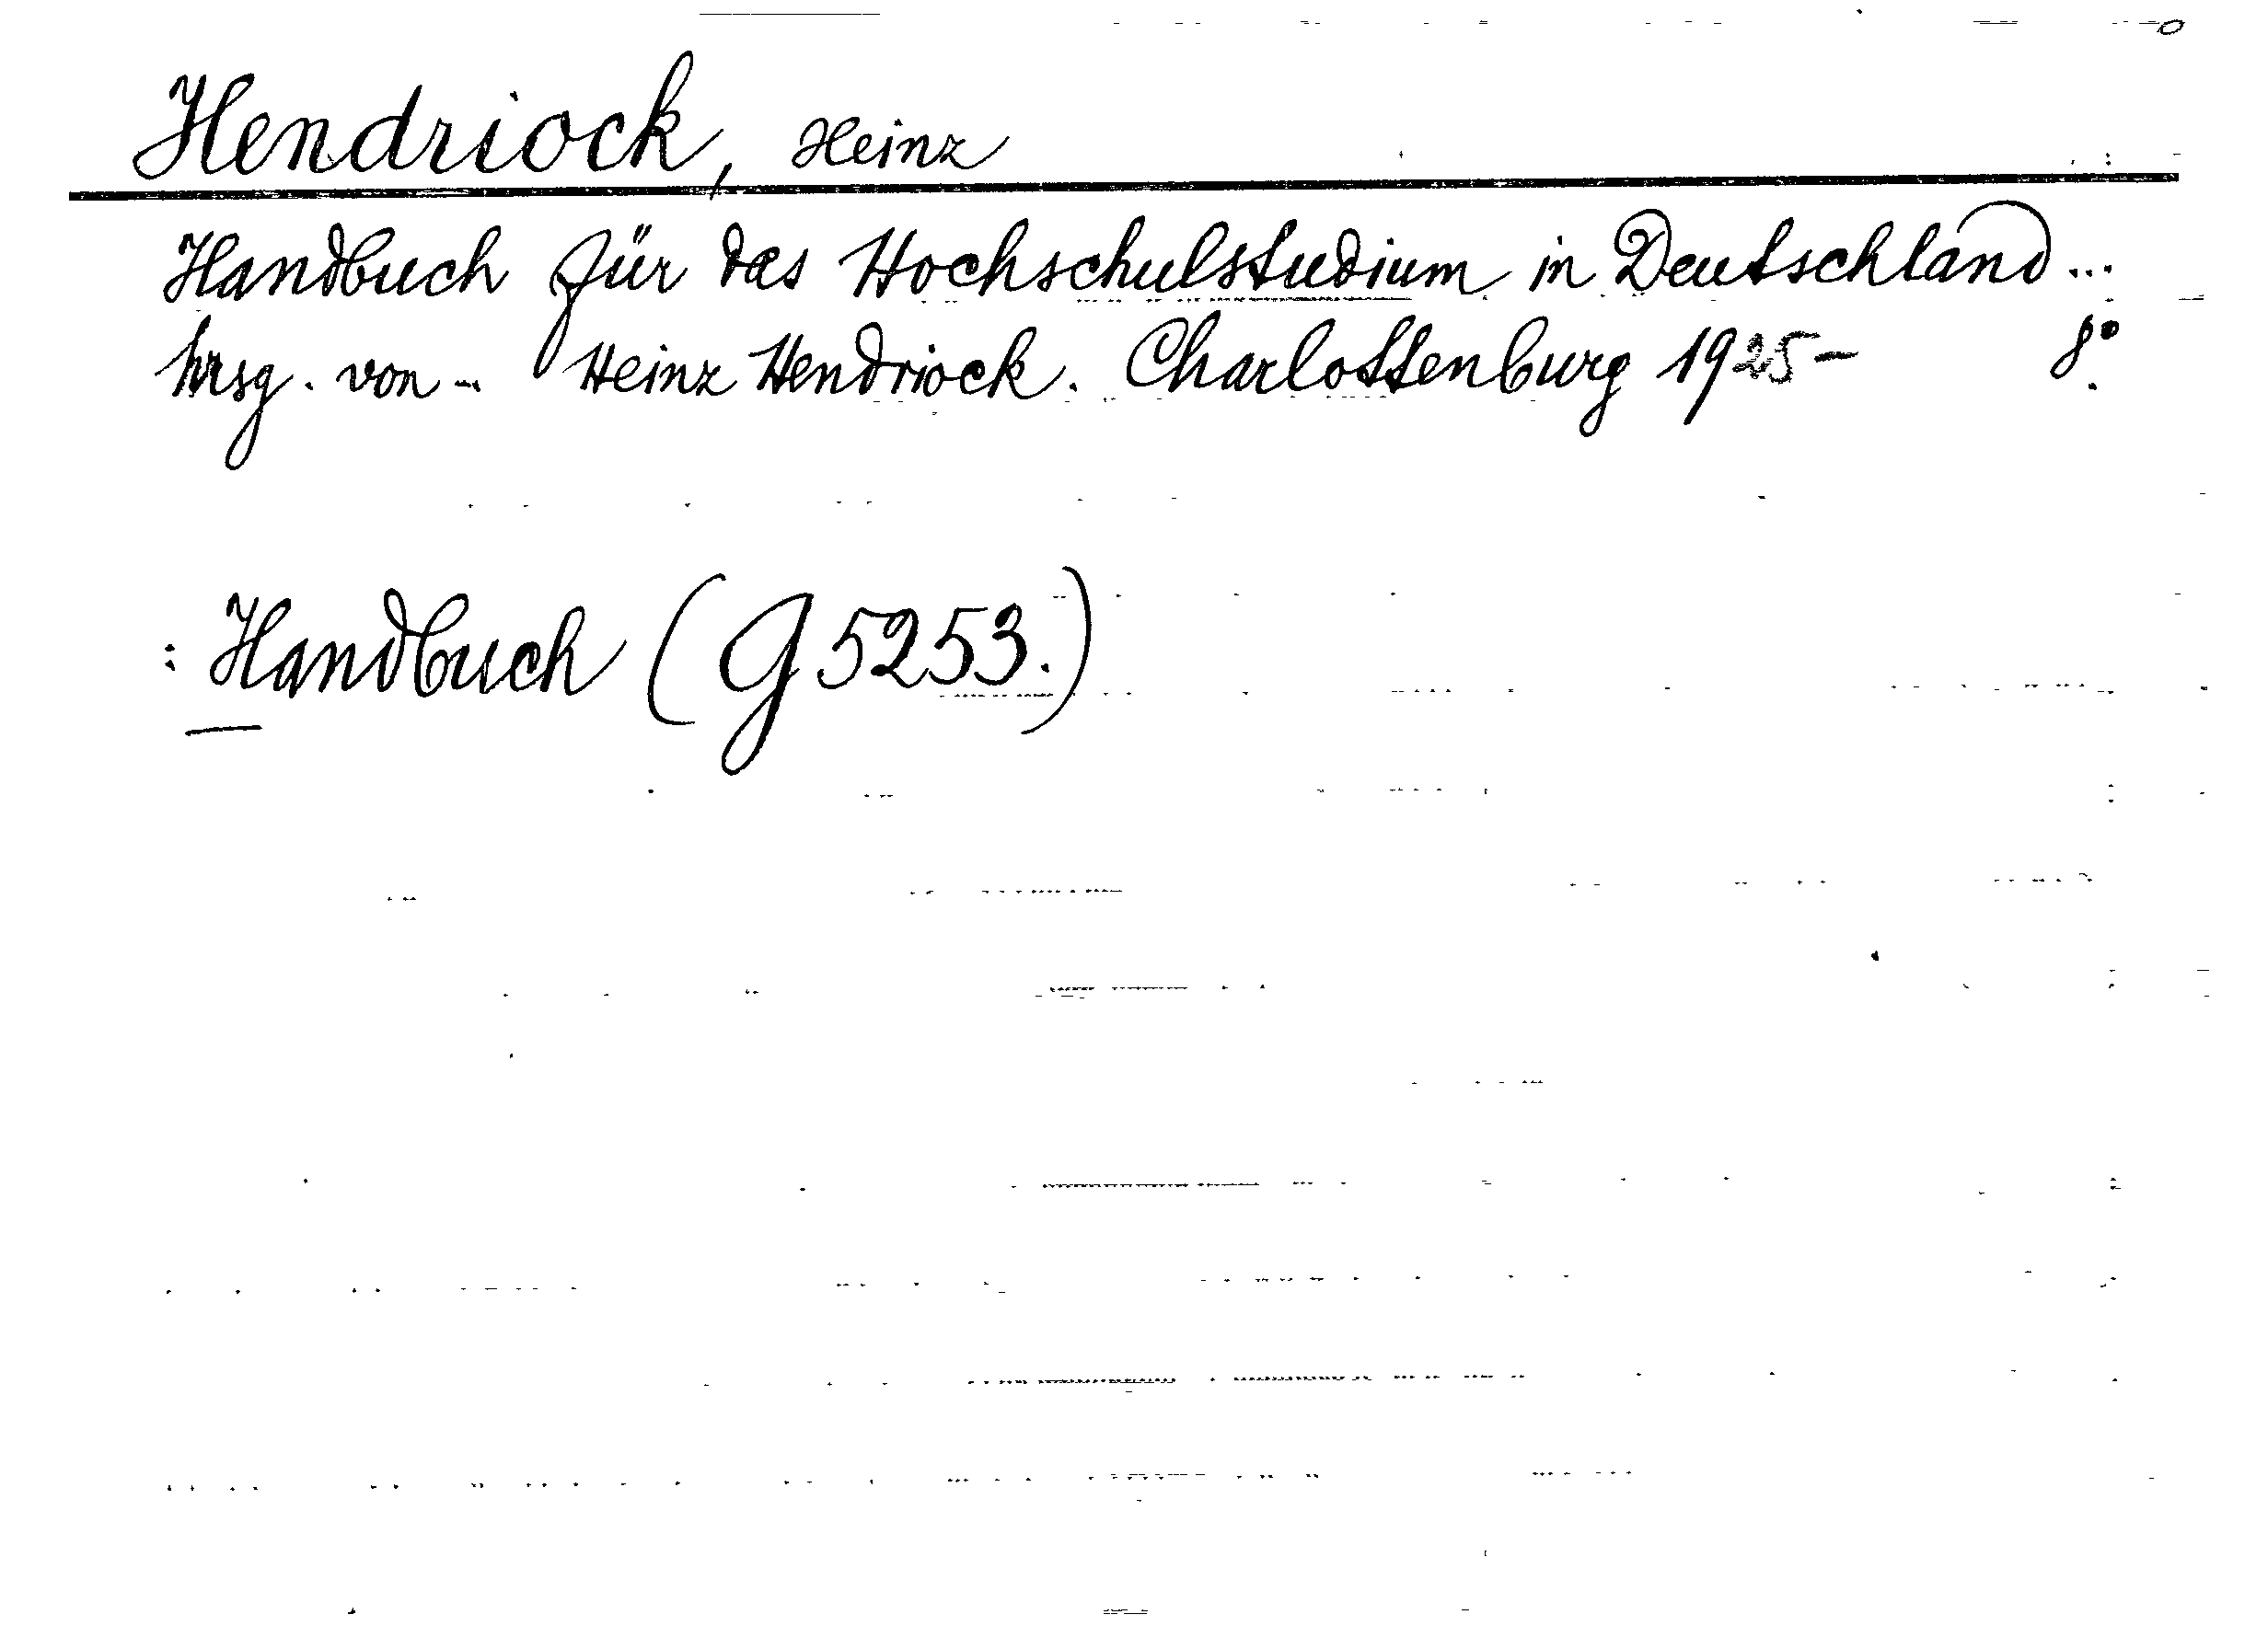 Hendriock, Heinz
Handbuch für das Hochschulstudium in Deutschland ...
hrsg. von ... Heinz Hendriock. Charlottenburg 1925- 8°.
: Handbuch (G 5253.)